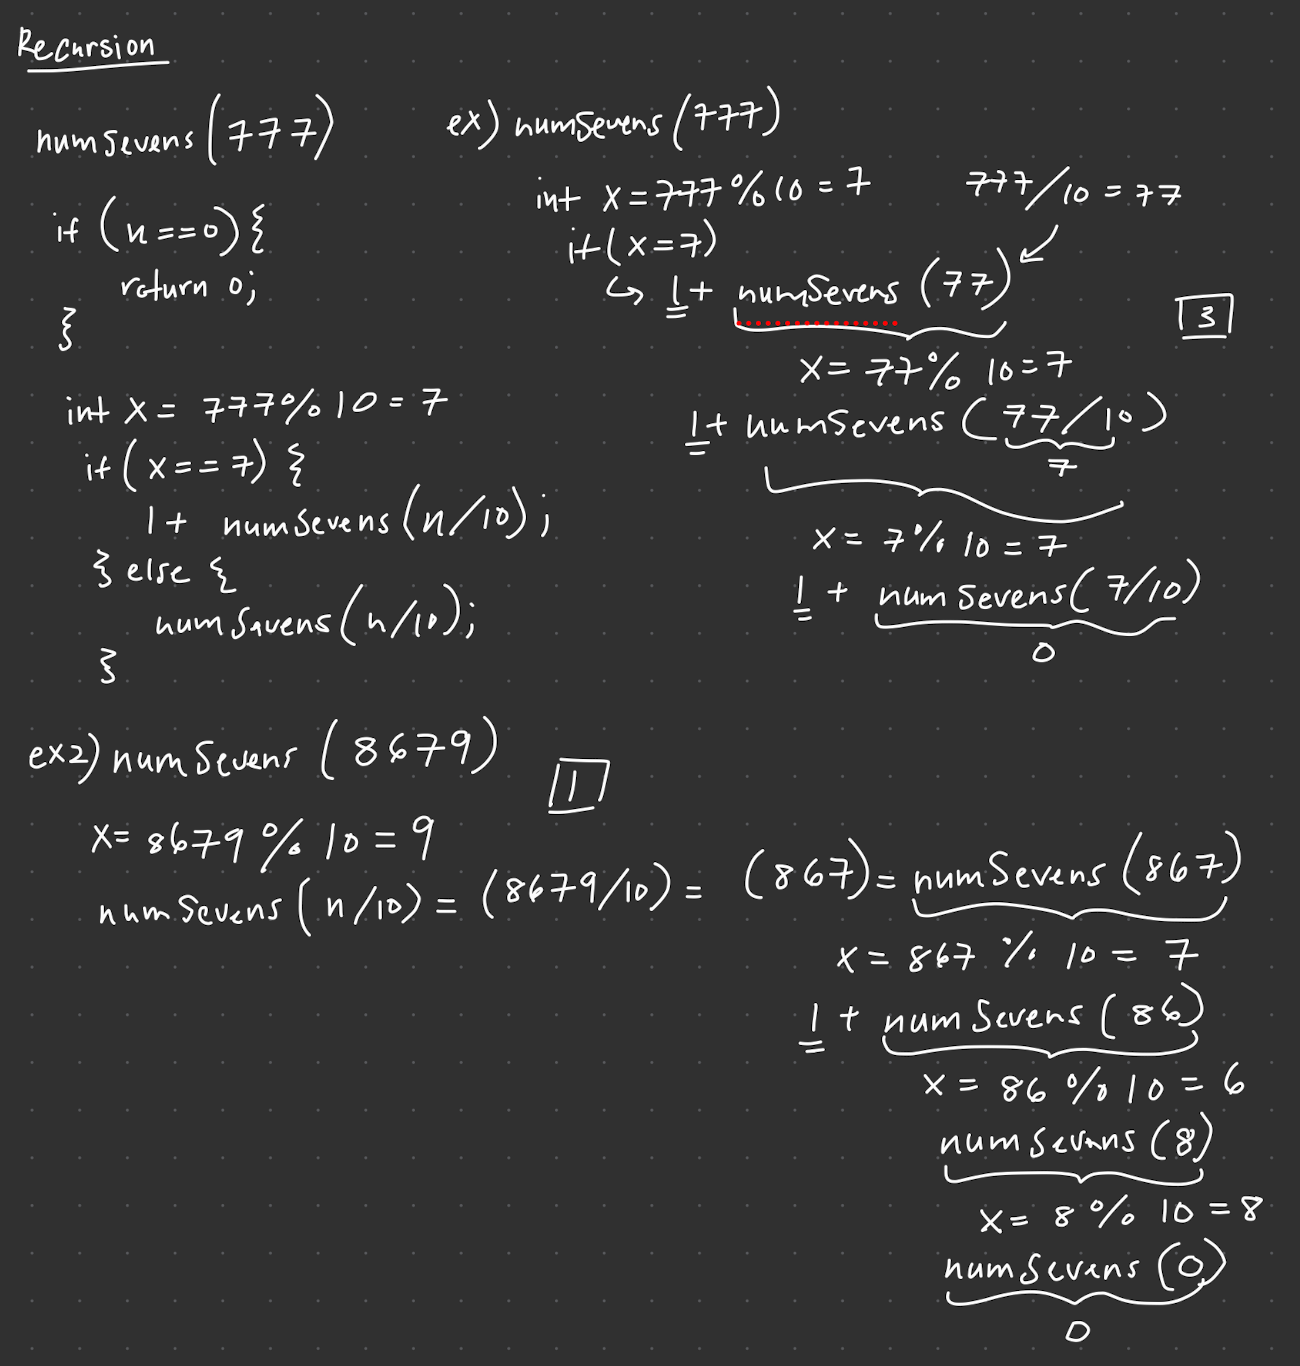 Recursion
numSevens(777)
if (n==0){
return 0;
}
int x = 777%10 = 7
if(x==7) {
1+ numSevens(n/10);
} else {
numSevens(n/10);
}
ex) numSevens(777)
int x = 777%10 = 7
777/10 = 77
if(x=7)
↳ 1+ numSevens (77)
3
x= 77% 10=7
1+ numSevens (77/10)
7
x = 7% 10 = 7
1 + numSevens(7/10)
0
ex2) numSevens (8679)
1
x= 8679 % 10 = 9
numSevens(n/10) = (8679/10) = (867) = numSevens (867)
x = 867 % 10 = 7
1 + numSevens (86)
x = 86 % 10 = 6
numSevens (8)
x= 8% 10 = 8
numSevens (0)
0